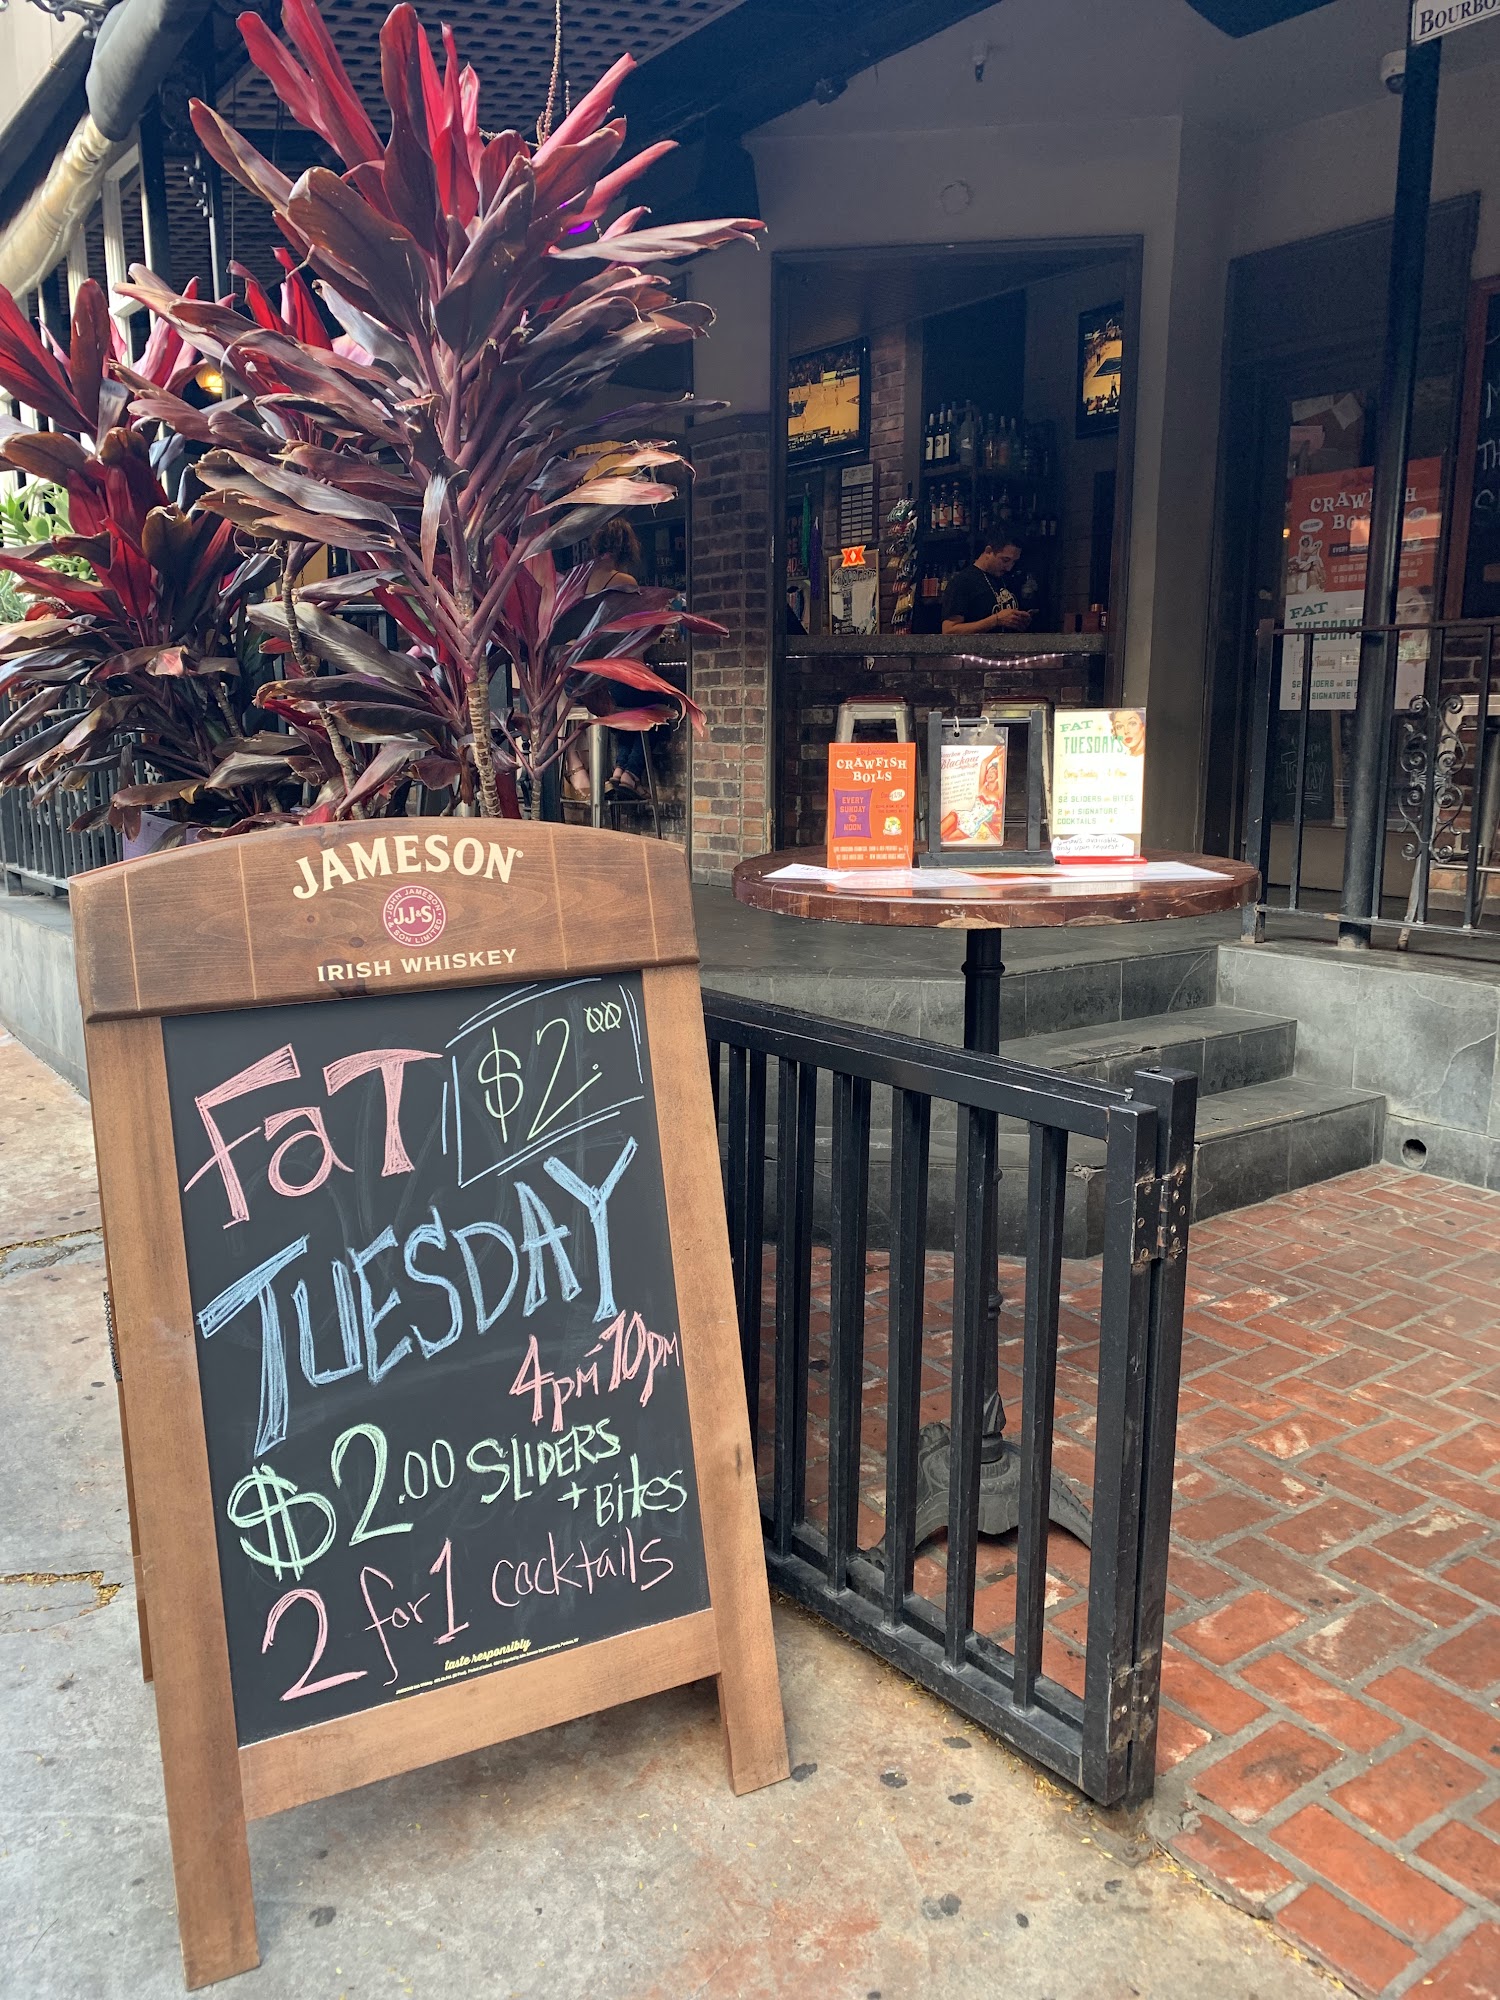 BOURBO
JAMESON
JOHN JAMESON
JJ&S
& SON LIMITED
IRISH WHISKEY
FaT $2.00
TUESDAY
4pm-10pm
$2.00 SLIDERS
+ Bites
2 for 1 cocktails
taste responsibly
CRAWFISH
BOILS
EVERY
SUNDAY
NOON
Blackout
FAT
TUESDAYS
$2 SLIDERS & BITES
2 for 1 SIGNATURE
COCKTAILS
XX
CRAWFISH
FAT
TUESDAYS
$2 SLIDERS & BIT
2 for 1 SIGNATURE